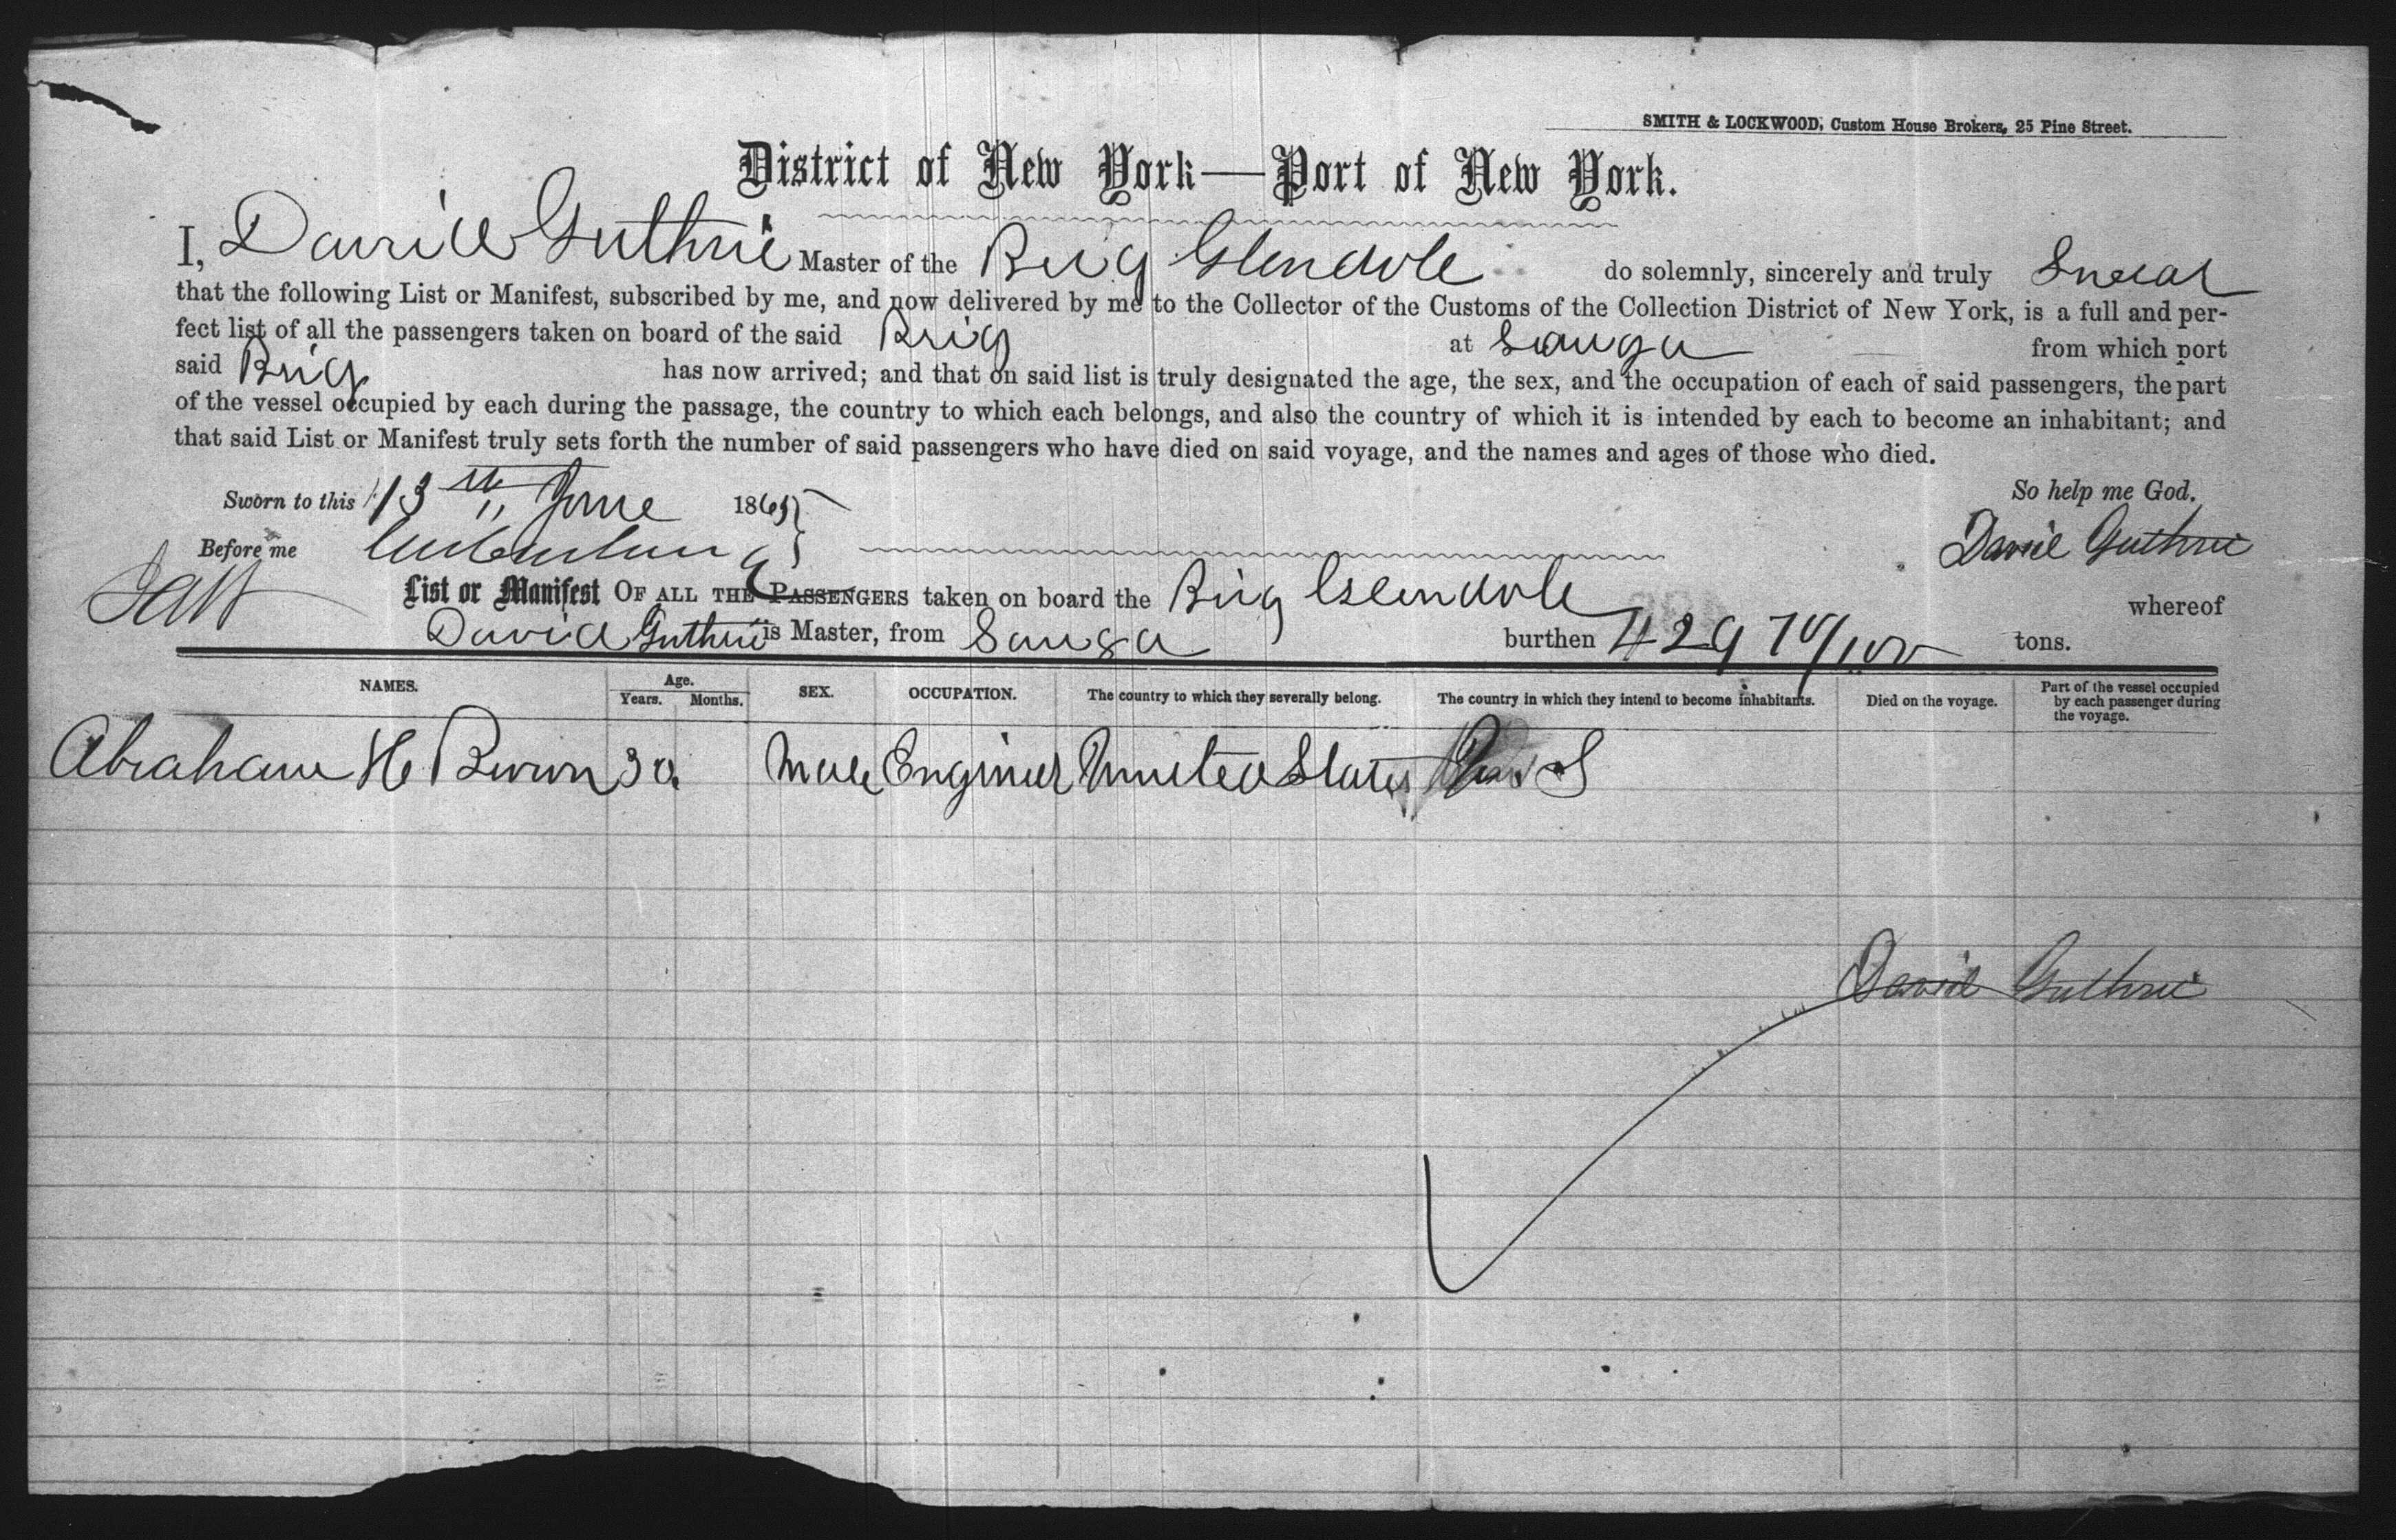 SMITH & LOCKWOOD, Custom House Brokers, 25 Pine Street.
District of New York—Port of New York.
I, David Guthrie Master of the Brig Glendole do solemnly, sincerely and truly Swear
that the following List or Manifest, subscribed by me, and now delivered by me to the Collector of the Customs of the Collection District of New York, is a full and per-
fect list of all the passengers taken on board of the said Brig at Sangu from which port
said Brig has now arrived; and that on said list is truly designated the age, the sex, and the occupation of each of said passengers, the part
of the vessel occupied by each during the passage, the country to which each belongs, and also the country of which it is intended by each to become an inhabitant; and
that said List or Manifest truly sets forth the number of said passengers who have died on said voyage, and the names and ages of those who died.
Sworn to this 13th June 1865 So help me God.
Before me David Guthrie
List or Manifest OF ALL THE PASSENGERS taken on board the Brig Glendole whereof
David Guthrie is Master, from Sanga burthen 429 70/100 tons.
NAMES. Age. Years. Months. SEX. OCCUPATION. The country to which they severally belong. The country in which they intend to become inhabitants. Died on the voyage. Part of the vessel occupied by each passenger during the voyage.
Abraham H Brown 30 Male Engineer United States S
David Guthrie